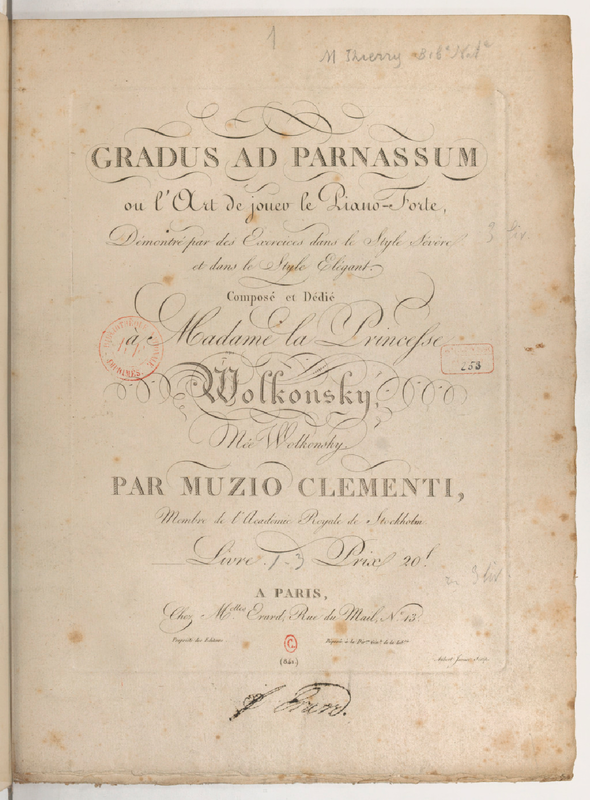 1
M Thierry
GRADUS AD PARNASSUM
ou l'Art de jouer le Piano-Forte,
Démontré par des Exercices dans le Style Sévère
et dans le Style Elégant.
Composé et Dédié
à Madame la Princesse
Wolkonsky,
Née Wolkonsky
PAR MUZIO CLEMENTI,
Membre de l'Académie Royale de Stockholm
Livre 1-3 Prix 20f.
A PARIS,
Chez Melles Erard, Rue du Mail, No. 13.
Propriété des Editeurs
Déposé à la Don Génle de la Libie
C.
253